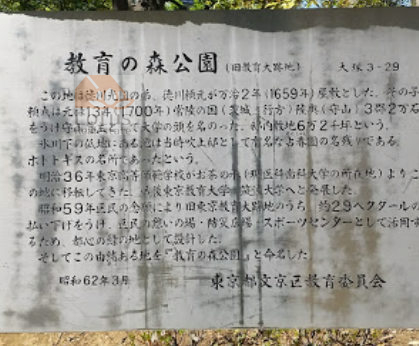 教育の森公園 (旧教育大跡地) 大塚3-29
この地は徳川光圀の弟、徳川頼元が万治2年(1659年)屋敷とした。その子
頼貞は元禄13年(1700年)常陸の国(茨城・行方)陸奥(守山)3郡2万石
をうけ守山藩主として大学の頭を名のった。邸内敷地6万2千坪という。
氷川下の低地にある池は当時吹上邸として有名な占春園の名残りである。
ホトトギスの名所であったという。
明治36年東京高等師範学校がお茶の水(現医科歯科大学の所在地)よりこ
の地に移転してきた。以後東京教育大学、筑波大学へと発展した。
昭和59年区民の念願により旧東京教育大跡地のうち、約2.9ヘクタールの
払い下げをうけ、区民の憩いの場・防災広場・スポーツセンターとして活用す
るため、都心の緑の地として設計した。
そしてこの由緒ある地を『教育の森公園』と命名した。
昭和62年3月 東京都文京区教育委員会